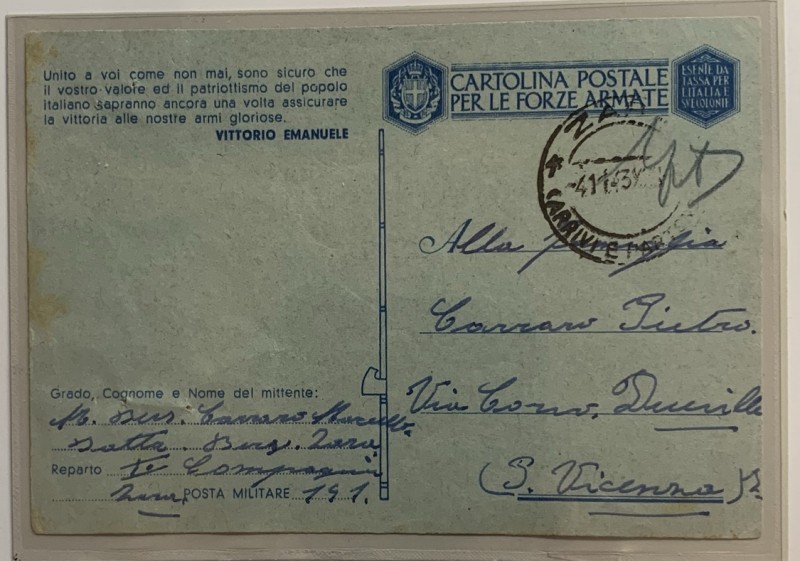 Unito a voi come non mai, sono sicuro che
il vostro valore ed il patriottismo del popolo
italiano sapranno ancora una volta assicurare
la vittoria alle nostre armi gloriose.
VITTORIO EMANUELE
CARTOLINA POSTALE
PER LE FORZE ARMATE
ESENTE DA
TASSA PER
L'ITALIA E
SVE COLONIE
ARRIVI E
Alla famiglia
Carraro Pietro.
Via Corvo. Dueville
(P. Vicenza)
Grado, Cognome e Nome del mittente:
M. Bers. Carraro Marcello
Batta. Bers. Zara
Reparto Iª Compagnia
Zara, POSTA MILITARE 141.